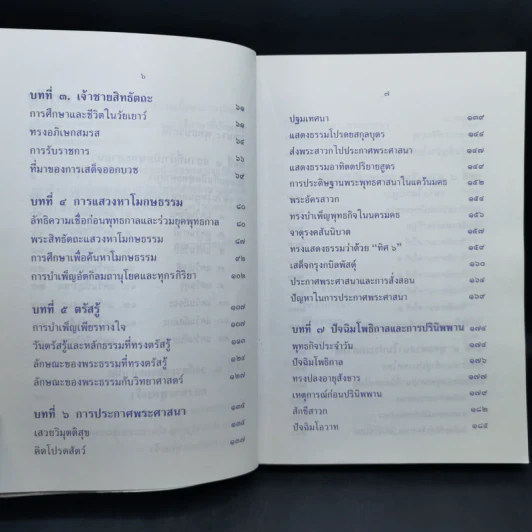 ๖
บทที่ ๓. เจ้าชายสิทธัตถะ ๖๑
การศึกษาและชีวิตในวัยเยาว์ ๖๑
ทรงอภิเษกสมรส ๖๔
การรับราชการ ๖๖
ที่มาของการเสด็จออกบวช ๖๙
บทที่ ๔ การแสวงหาโมกษธรรม ๘๐
ลัทธิความเชื่อก่อนพุทธกาลและร่วมยุคพุทธกาล ๘๐
พระสิทธัตถะแสวงหาโมกษธรรม ๘๗
การศึกษาเพื่อค้นหาโมกษธรรม ๙๒
การบำเพ็ญอัตกิลมถานุโยคและทุกรกิริยา ๑๐๒
บทที่ ๕ ตรัสรู้ ๑๐๗
การบำเพ็ญเพียรทางใจ ๑๐๗
วันตรัสรู้และหลักธรรมที่ทรงตรัสรู้ ๑๑๐
ลักษณะของพระธรรมที่ทรงตรัสรู้ ๑๒๔
ลักษณะของพระธรรมกับวิทยาศาสตร์ ๑๒๗
บทที่ ๖ การประกาศพระศาสนา ๑๓๕
เสวยวิมุตติสุข ๑๓๕
คิดโปรดสัตว์ ๑๐๗
๗
ปฐมเทศนา ๑๓๙
แสดงธรรมโปรดยสกุลบุตร ๑๔๔
ส่งพระสาวกไปประกาศพระศาสนา ๑๔๗
แสดงธรรมอาทิตตปริยายสูตร ๑๔๙
การประดิษฐานพระพุทธศาสนาในแคว้นมคธ ๑๕๒
พระอัครสาวก ๑๕๔
ทรงบำเพ็ญพุทธกิจในนครมคธ ๑๕๖
จาตุรงคสันนิบาต ๑๕๗
ทรงแสดงธรรมว่าด้วย "ทิศ ๖" ๑๕๙
เสด็จกรุงกบิลพัสดุ์ ๑๖๐
ประกาศพระศาสนาและการสั่งสอน ๑๖๔
ปัญหาในการประกาศพระศาสนา ๑๖๙
บทที่ ๗ ปัจฉิมโพธิกาลและการปรินิพพาน ๑๗๔
พุทธกิจประจำวัน ๑๗๔
ปัจฉิมโพธิกาล ๑๗๖
ทรงปลงอายุสังขาร ๑๗๗
เหตุการณ์ก่อนปรินิพพาน ๑๗๙
สักขีสาวก ๑๘๒
ปัจฉิมโอวาท ๑๘๕